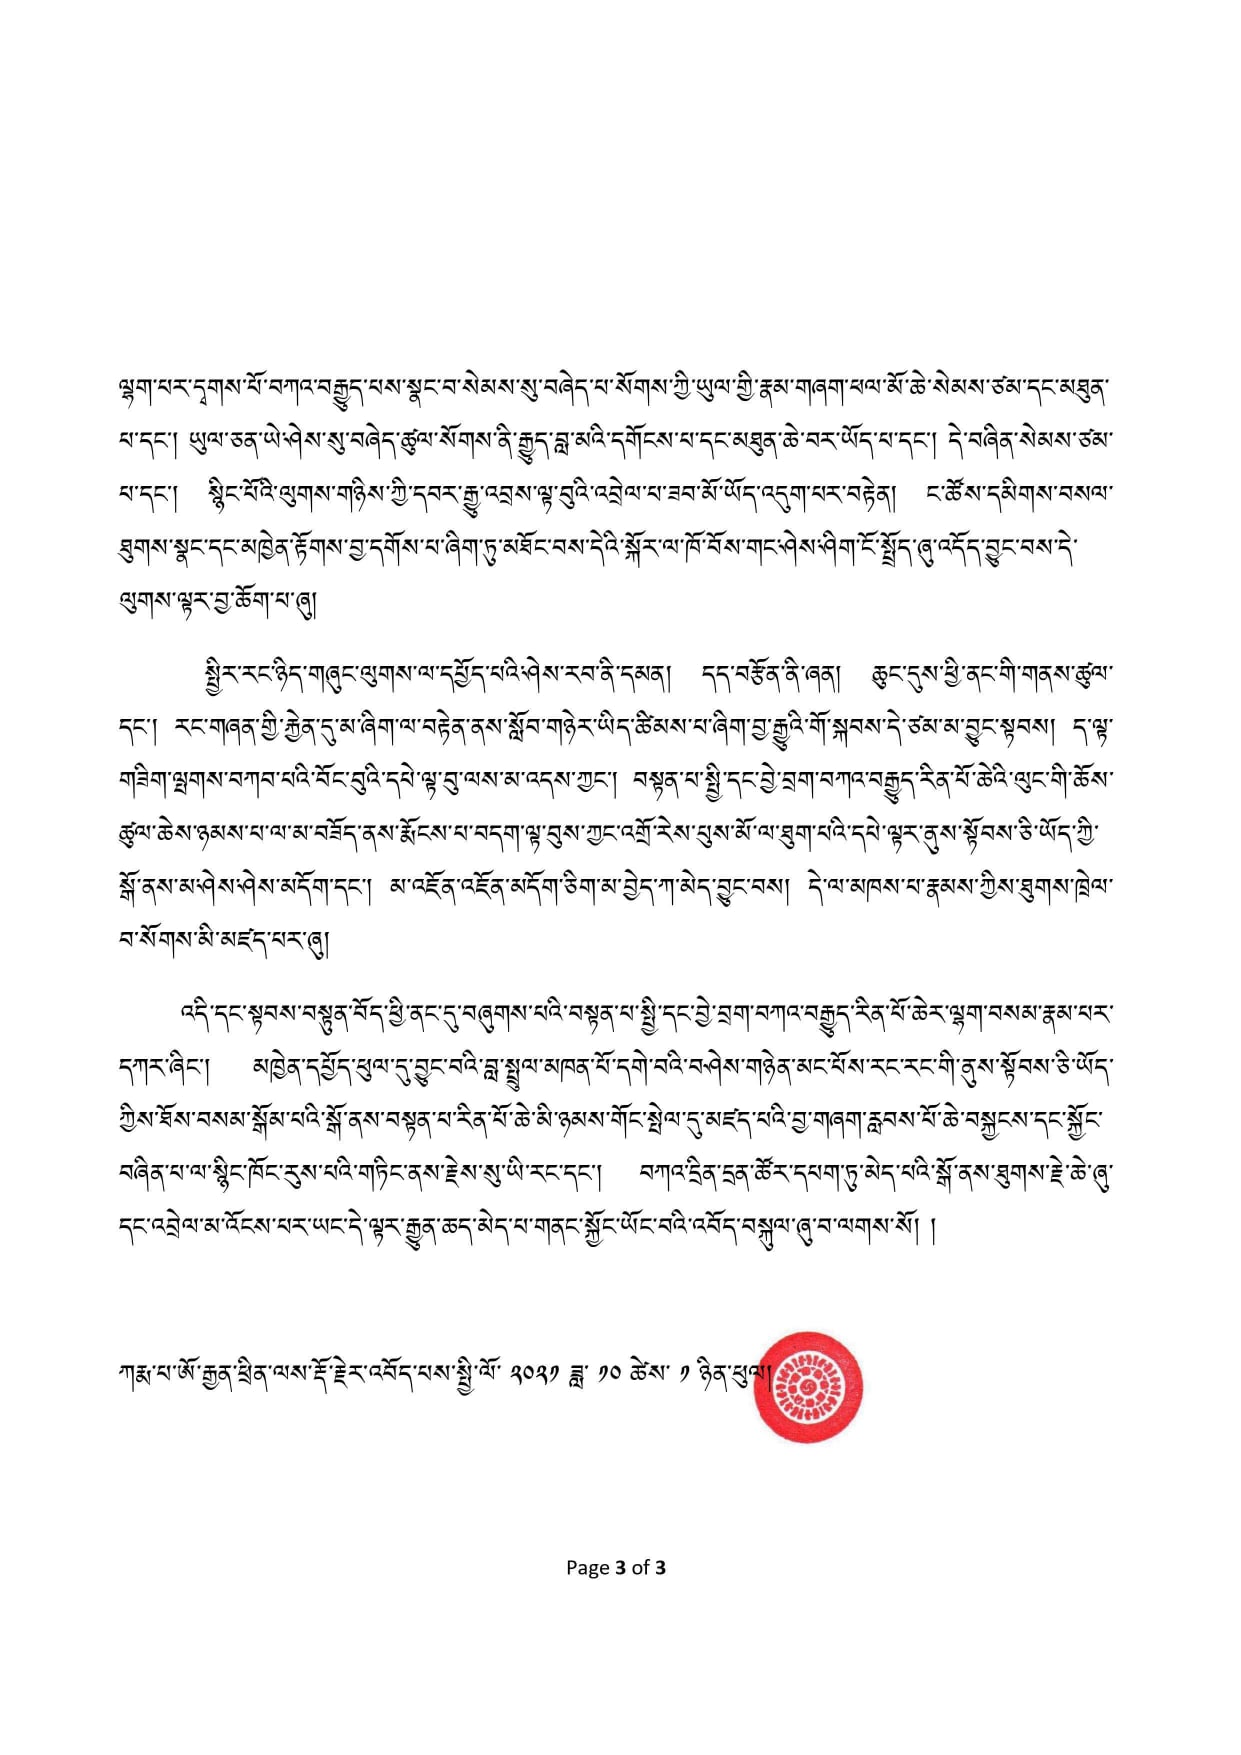 ལྷག་པར་དྭགས་པོ་བཀའ་བརྒྱུད་པས་སྣང་བ་སེམས་སུ་བཞེད་པ་སོགས་ཀྱི་ཡུལ་གྱི་རྣམ་གཞག་ཕལ་མོ་ཆེ་སེམས་ཙམ་དང་མཐུན་
པ་དང་། ཡུལ་ཅན་ཡེ་ཤེས་སུ་བཞེད་ཚུལ་སོགས་ནི་རྒྱུད་བླ་མའི་དགོངས་པ་དང་མཐུན་ཆེ་བར་ཡོད་པ་དང་། དེ་བཞིན་སེམས་ཙམ་
པ་དང་། སྙིང་པོའི་ལུགས་གཉིས་ཀྱི་དབར་རྒྱུ་འབྲས་ལྟ་བུའི་འབྲེལ་པ་ཟབ་མོ་ཡོད་འདུག་པར་བརྟེན། ང་ཚོས་དམིགས་བསལ་
ཐུགས་སྣང་དང་མཁྱེན་རྟོགས་བྱ་དགོས་པ་ཞིག་ཏུ་མཐོང་བས་དེའི་སྐོར་ལ་ཁོ་བོས་གང་ཤེས་ཤིག་ངོ་སྤྲོད་ཞུ་འདོད་བྱུང་བས་དེ་
ལུགས་ལྟར་བྱ་ཆོག་པ་ཞུ།
སྤྱིར་རང་ཉིད་གཞུང་ལུགས་ལ་དཔྱོད་པའི་ཤེས་རབ་ནི་དམན། དད་བརྩོན་ནི་ཞན། ཆུང་དུས་ཕྱི་ནང་གི་གནས་ཚུལ་
དང་། རང་གཞན་གྱི་རྐྱེན་དུ་མ་ཞིག་ལ་བརྟེན་ནས་སློབ་གཉེར་ཡིད་ཚིམས་པ་ཞིག་བྱ་རྒྱུའི་གོ་སྐབས་དེ་ཙམ་མ་བྱུང་སྟབས། ད་ལྟ་
གཟིག་ལྤགས་བཀབ་པའི་བོང་བུའི་དཔེ་ལྟ་བུ་ལས་མ་འདས་ཀྱང་། བསྟན་པ་སྤྱི་དང་བྱེ་བྲག་བཀའ་བརྒྱུད་རིན་པོ་ཆེའི་ལུང་གི་ཆོས་
ཚུལ་ཆེས་ཉམས་པ་ལ་མ་བཟོད་ནས་རྨོངས་པ་བདག་ལྟ་བུས་ཀྱང་འགྲོ་རེས་པུས་མོ་ལ་ཐུག་པའི་དཔེ་ལྟར་ནུས་སྟོབས་ཅི་ཡོད་ཀྱི་
སྒོ་ནས་མ་ཤེས་ཤེས་མདོག་དང་། མ་འཇོན་འཇོན་མདོག་ཅིག་མ་བྱེད་ཀ་མེད་བྱུང་བས། དེ་ལ་མཁས་པ་རྣམས་ཀྱིས་ཐུགས་ཁྲེལ་
བ་སོགས་མི་མཛད་པར་ཞུ།
འདི་དང་སྟབས་བསྟུན་བོད་ཕྱི་ནང་དུ་བཞུགས་པའི་བསྟན་པ་སྤྱི་དང་བྱེ་བྲག་བཀའ་བརྒྱུད་རིན་པོ་ཆེར་ལྷག་བསམ་རྣམ་པར་
དཀར་ཞིང་། མཁྱེན་དཔྱོད་ཕུལ་དུ་བྱུང་བའི་བླ་སྤྲུལ་མཁན་པོ་དགེ་བའི་བཤེས་གཉེན་མང་པོས་རང་རང་གི་ནུས་སྟོབས་ཅི་ཡོད་
ཀྱིས་ཐོས་བསམ་སྒོམ་པའི་སྒོ་ནས་བསྟན་པ་རིན་པོ་ཆེ་མི་ཉམས་གོང་སྤེལ་དུ་མཛད་པའི་བྱ་གཞག་རླབས་པོ་ཆེ་བསྐྱངས་དང་སྐྱོང་
བཞིན་པ་ལ་སྙིང་ཁོང་རུས་པའི་གཏིང་ནས་རྗེས་སུ་ཡི་རང་དང་། བཀའ་དྲིན་དྲན་ཚོར་དཔག་ཏུ་མེད་པའི་སྒོ་ནས་ཐུགས་རྗེ་ཆེ་ཞུ་
དང་འབྲེལ་མ་འོངས་པར་ཡང་དེ་ལྟར་རྒྱུན་ཆད་མེད་པ་གནང་སྐྱོང་ཡོང་བའི་འབོད་བསྐུལ་ཞུ་བ་ལགས་སོ། །
ཀརྨ་པ་ཨོ་རྒྱན་ཕྲིན་ལས་རྡོ་རྗེར་འབོད་པས་སྤྱི་ལོ་ ༢༠༢༡ ཟླ་ ༡༠ ཚེས་ ༡ ཉིན་ཕུལ།
Page 3 of 3